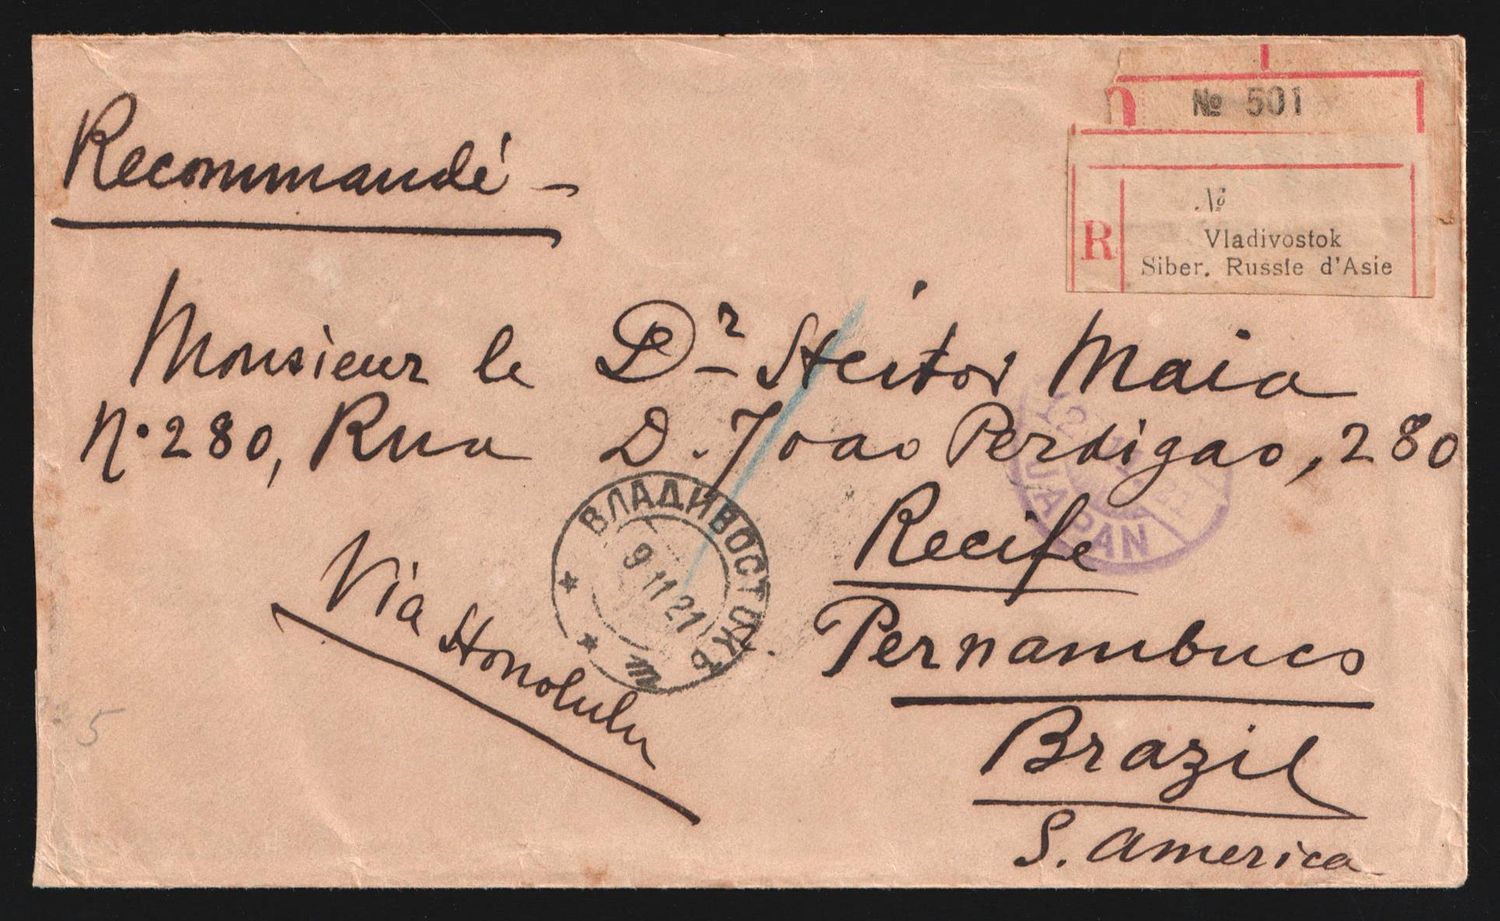 Recommandé -
№ 501
№
R
Vladivostok
Siber. Russie d'Asie
Monsieur le Dr Heitor Maia
N. 280, Rua D. Joao Perdigao, 280
Recife
Pernambuco
Brazil
S. America
Via Honolulu
ВЛАДИВОСТОКЪ
9 11 21
12.11.21
JAPAN
5